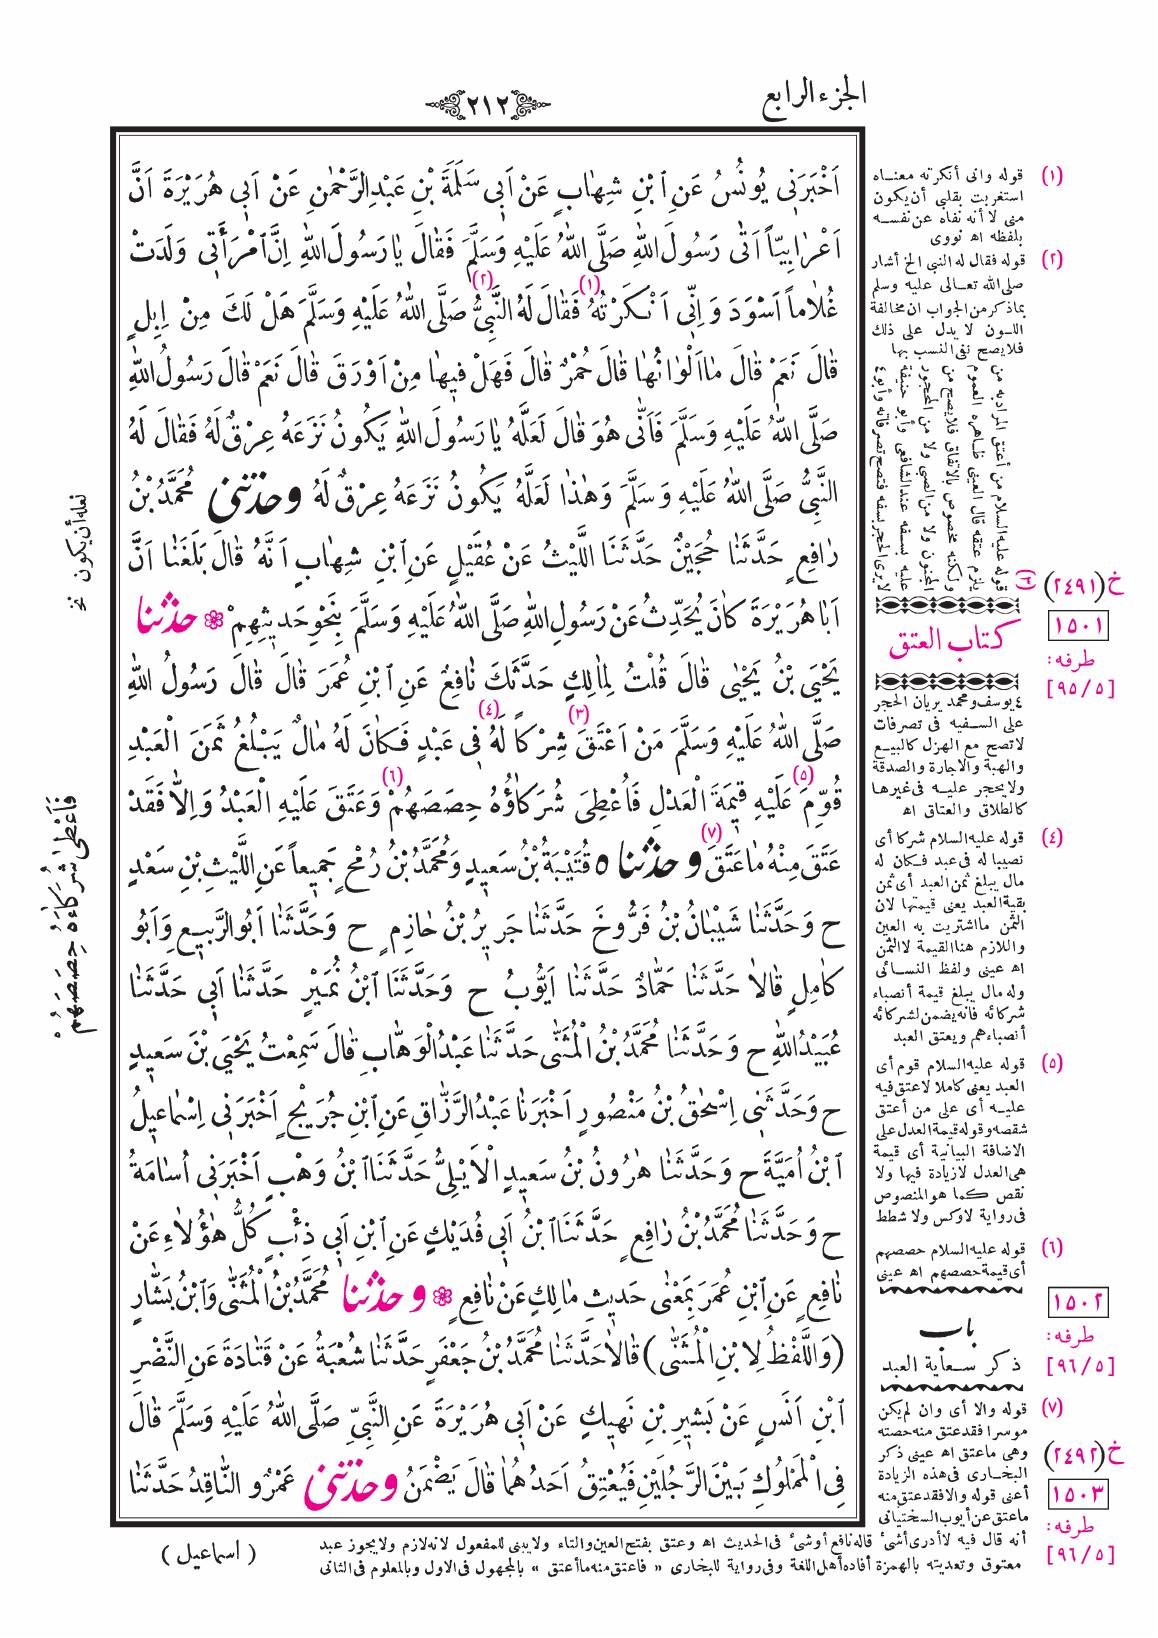 الجزء الرابع
٢١٢
اَخْبَرَنِى يُونُسُ عَنِ ابْنِ شِهَابٍ عَنْ اَبِى سَلَمَةَ بْنِ عَبْدِ الرَّحْمٰنِ عَنْ اَبِى هُرَيْرَةَ اَنَّ
اَعْرَابِيّاً اَتٰى رَسُولَ اللهِ صَلَّى اللهُ عَلَيْهِ وَسَلَّمَ فَقَالَ يَا رَسُولَ اللهِ اِنَّ امْرَأَتِى وَلَدَتْ
غُلَاماً اَسْوَدَ وَاِنِّى اَنْكَرْتُهُ (١) فَقَالَ لَهُ النَّبِىُّ (٢) صَلَّى اللهُ عَلَيْهِ وَسَلَّمَ هَلْ لَكَ مِنْ اِبِلٍ
قَالَ نَعَمْ قَالَ مَا اَلْوَانُهَا قَالَ حُمْرٌ قَالَ فَهَلْ فِيهَا مِنْ اَوْرَقَ قَالَ نَعَمْ قَالَ رَسُولُ اللهِ
صَلَّى اللهُ عَلَيْهِ وَسَلَّمَ فَاَنّٰى هُوَ قَالَ لَعَلَّهُ يَا رَسُولَ اللهِ يَكُونُ نَزَعَهُ عِرْقٌ لَهُ فَقَالَ لَهُ
النَّبِىُّ صَلَّى اللهُ عَلَيْهِ وَسَلَّمَ وَهٰذَا لَعَلَّهُ يَكُونُ نَزَعَهُ عِرْقٌ لَهُ وحدثنى مُحَمَّدُ بْنُ
رَافِعٍ حَدَّثَنَا حُجَيْنٌ حَدَّثَنَا اللَّيْثُ عَنْ عُقَيْلٍ عَنِ ابْنِ شِهَابٍ اَنَّهُ قَالَ بَلَغَنَا اَنَّ
اَبَا هُرَيْرَةَ كَانَ يُحَدِّثُ عَنْ رَسُولِ اللهِ صَلَّى اللهُ عَلَيْهِ وَسَلَّمَ بِنَحْوِ حَدِيثِهِمْ ❁ حدثنا
يَحْيَى بْنُ يَحْيٰى قَالَ قُلْتُ لِمَالِكٍ حَدَّثَكَ نَافِعٌ عَنِ ابْنِ عُمَرَ قَالَ قَالَ رَسُولُ اللهِ
صَلَّى اللهُ عَلَيْهِ وَسَلَّمَ مَنْ اَعْتَقَ (٣) شِرْكًا لَهُ (٤) فِى عَبْدٍ فَكَانَ لَهُ مَالٌ يَبْلُغُ ثَمَنَ الْعَبْدِ
قُوِّمَ (٥) عَلَيْهِ قِيمَةَ الْعَدْلِ فَاُعْطِىَ شُرَكَاؤُهُ حِصَصَهُمْ (٦) وَعَتَقَ عَلَيْهِ الْعَبْدُ وَاِلَّا فَقَدْ
عَتَقَ مِنْهُ مَا عَتَقَ (٧) وحدثنا ٥ قُتَيْبَةُ بْنُ سَعِيدٍ وَمُحَمَّدُ بْنُ رُمْحٍ جَمِيعاً عَنِ اللَّيْثِ بْنِ سَعْدٍ
ح وَحَدَّثَنَا شَيْبَانُ بْنُ فَرُّوخَ حَدَّثَنَا جَرِيرُ بْنُ حَازِمٍ ح وَحَدَّثَنَا اَبُو الرَّبِيعِ وَاَبُو
كَامِلٍ قَالَا حَدَّثَنَا حَمَّادٌ حَدَّثَنَا اَيُّوبُ ح وَحَدَّثَنَا ابْنُ نُمَيْرٍ حَدَّثَنَا اَبِى حَدَّثَنَا
عُبَيْدُ اللهِ ح وَحَدَّثَنَا مُحَمَّدُ بْنُ الْمُثَنّٰى حَدَّثَنَا عَبْدُ الْوَهَّابِ قَالَ سَمِعْتُ يَحْيَى بْنَ سَعِيدٍ
ح وَحَدَّثَنِى اِسْحٰقُ بْنُ مَنْصُورٍ اَخْبَرَنَا عَبْدُ الرَّزَّاقِ عَنِ ابْنِ جُرَيْجٍ اَخْبَرَنِى اِسْمَاعِيلُ
ابْنُ اُمَيَّةَ ح وَحَدَّثَنَا هٰرُونُ بْنُ سَعِيدٍ الْاَيْلِىُّ حَدَّثَنَا ابْنُ وَهْبٍ اَخْبَرَنِى اُسَامَةُ
ح وَحَدَّثَنَا مُحَمَّدُ بْنُ رَافِعٍ حَدَّثَنَا ابْنُ اَبِى فُدَيْكٍ عَنِ ابْنِ اَبِى ذِئْبٍ كُلُّ هٰؤُلَاءِ عَنْ
نَافِعٍ عَنِ ابْنِ عُمَرَ بِمَعْنٰى حَدِيثِ مَالِكٍ عَنْ نَافِعٍ ❁ وحدثنا مُحَمَّدُ بْنُ الْمُثَنّٰى وَابْنُ بَشَّارٍ
(وَاللَّفْظُ لِابْنِ الْمُثَنّٰى) قَالَا حَدَّثَنَا مُحَمَّدُ بْنُ جَعْفَرٍ حَدَّثَنَا شُعْبَةُ عَنْ قَتَادَةَ عَنِ النَّضْرِ
ابْنِ اَنَسٍ عَنْ بَشِيرِ بْنِ نَهِيكٍ عَنْ اَبِى هُرَيْرَةَ عَنِ النَّبِىِّ صَلَّى اللهُ عَلَيْهِ وَسَلَّمَ قَالَ
فِى الْمَمْلُوكِ بَيْنَ الرَّجُلَيْنِ فَيُعْتِقُ اَحَدُهُمَا قَالَ يَضْمَنُ وحدثنى عَمْرٌو النَّاقِدُ حَدَّثَنَا
(١) قوله وانى أنكرته معناه
استغربت بقلبى أن يكون
منى لا أنه نفاه عن نفسه
بلفظه اه نووى
(٢) قوله فقال له النبى الخ أشار
صلى الله تعالى عليه وسلم
بماذكر من الجواب ان مخالفة
اللون لا يدل على ذلك
فلا يصح نفى النسب بها
(٣) قوله عليه السلام من أعتق المراد به من
يلزم عتقه قال العينى ظاهره العموم
ولكنه مخصوص بالاتفاق فلا يصح من
المجنون ولا من الصبى ولا من المحجور
عليه بسفه عند الشافعى وأبو حنيفة
لا يرى الحجر بسفه فتصح تصرفاته وأبو ٤
خ (٢٤٩١)
١٥٠١
طرفه:
[٩٥/٥]
كتاب العتق
٤ يوسف ومحمد يريان الحجر
على السفيه فى تصرفات
لا تصح مع الهزل كالبيع
والهبة والاجارة والصدقة
ولا يحجر عليه فى غيرها
كالطلاق والعتاق اه
(٤) قوله عليه السلام شركا أى
نصيبا له فى عبد فكان له
مال يبلغ ثمن العبد أى ثمن
بقية العبد يعنى قيمتها لان
الثمن ما اشتريت به العين
واللازم هنا القيمة لا الثمن
اه عينى ولفظ النسائى
وله مال يبلغ قيمة أنصباء
شركائه فانه يضمن لشركائه
أنصباءهم ويعتق العبد
(٥) قوله عليه السلام قوم أى
العبد يعنى كاملا لا عتق فيه
عليه أى على من أعتق
شقصه وقوله قيمة العدل على
الاضافة البيانية أى قيمة
هى العدل لا زيادة فيها ولا
نقص كما هو المنصوص
فى رواية لا وكس ولا شطط
(٦) قوله عليه السلام حصصهم
أى قيمة حصصهم اه عينى
١٥٠٢
طرفه:
[٩٦/٥]
باب
ذكر سعاية العبد
(٧) قوله والا أى وان لم يكن
موسرا فقد عتق منه حصته
وهى ما عتق اه عينى ذكر
البخارى فى هذه الزيادة
أعنى قوله والا فقد عتق منه
ما عتق عن أيوب السختيانى
خ (٢٤٩٢)
١٥٠٣
طرفه:
[٩٦/٥]
أنه قال فيه لا أدرى أشىء قاله نافع أو شىء فى الحديث اه وعتق بفتح العين والتاء ولا يبنى للمفعول لانه لازم ولا يجوز عبد
معتوق وتعديته بالهمزة أفاده أهل اللغة وفى رواية للبخارى « فاعتق منه ما أعتق » بالمجهول فى الاول وبالمعلوم فى الثانى
( اسماعيل )
لعله أن يكون نخ
فَاَعْطٰى شُرَكَاءَهُ حِصَصَهُمْ